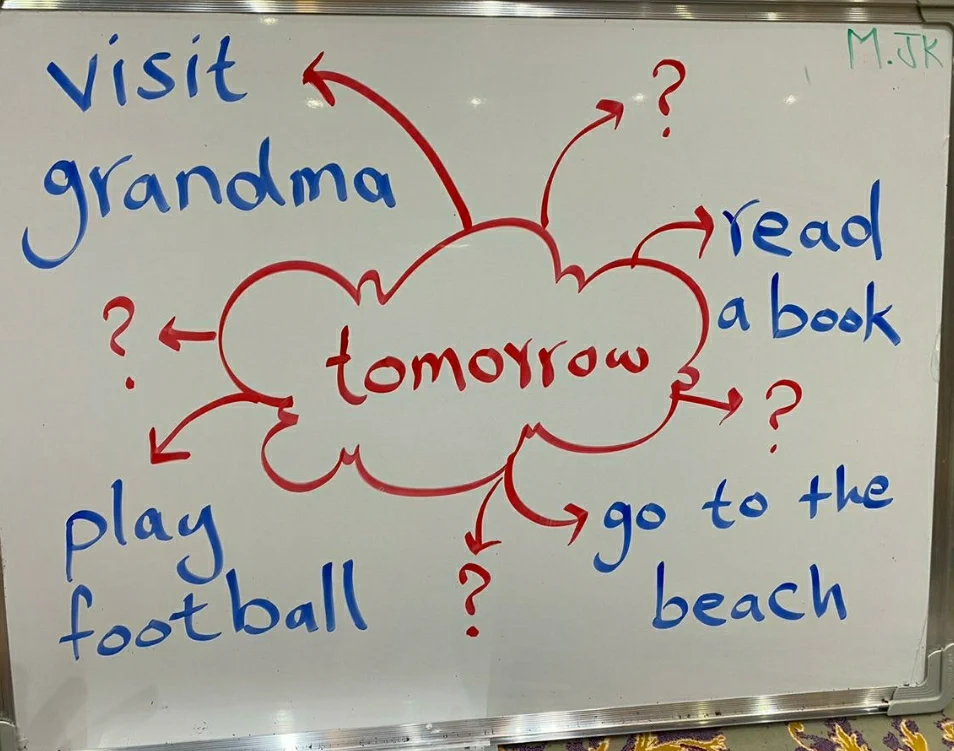 visit
grandma
M.JK
?
read
a book
?
tomorrow
?
play
football
?
go to the
beach